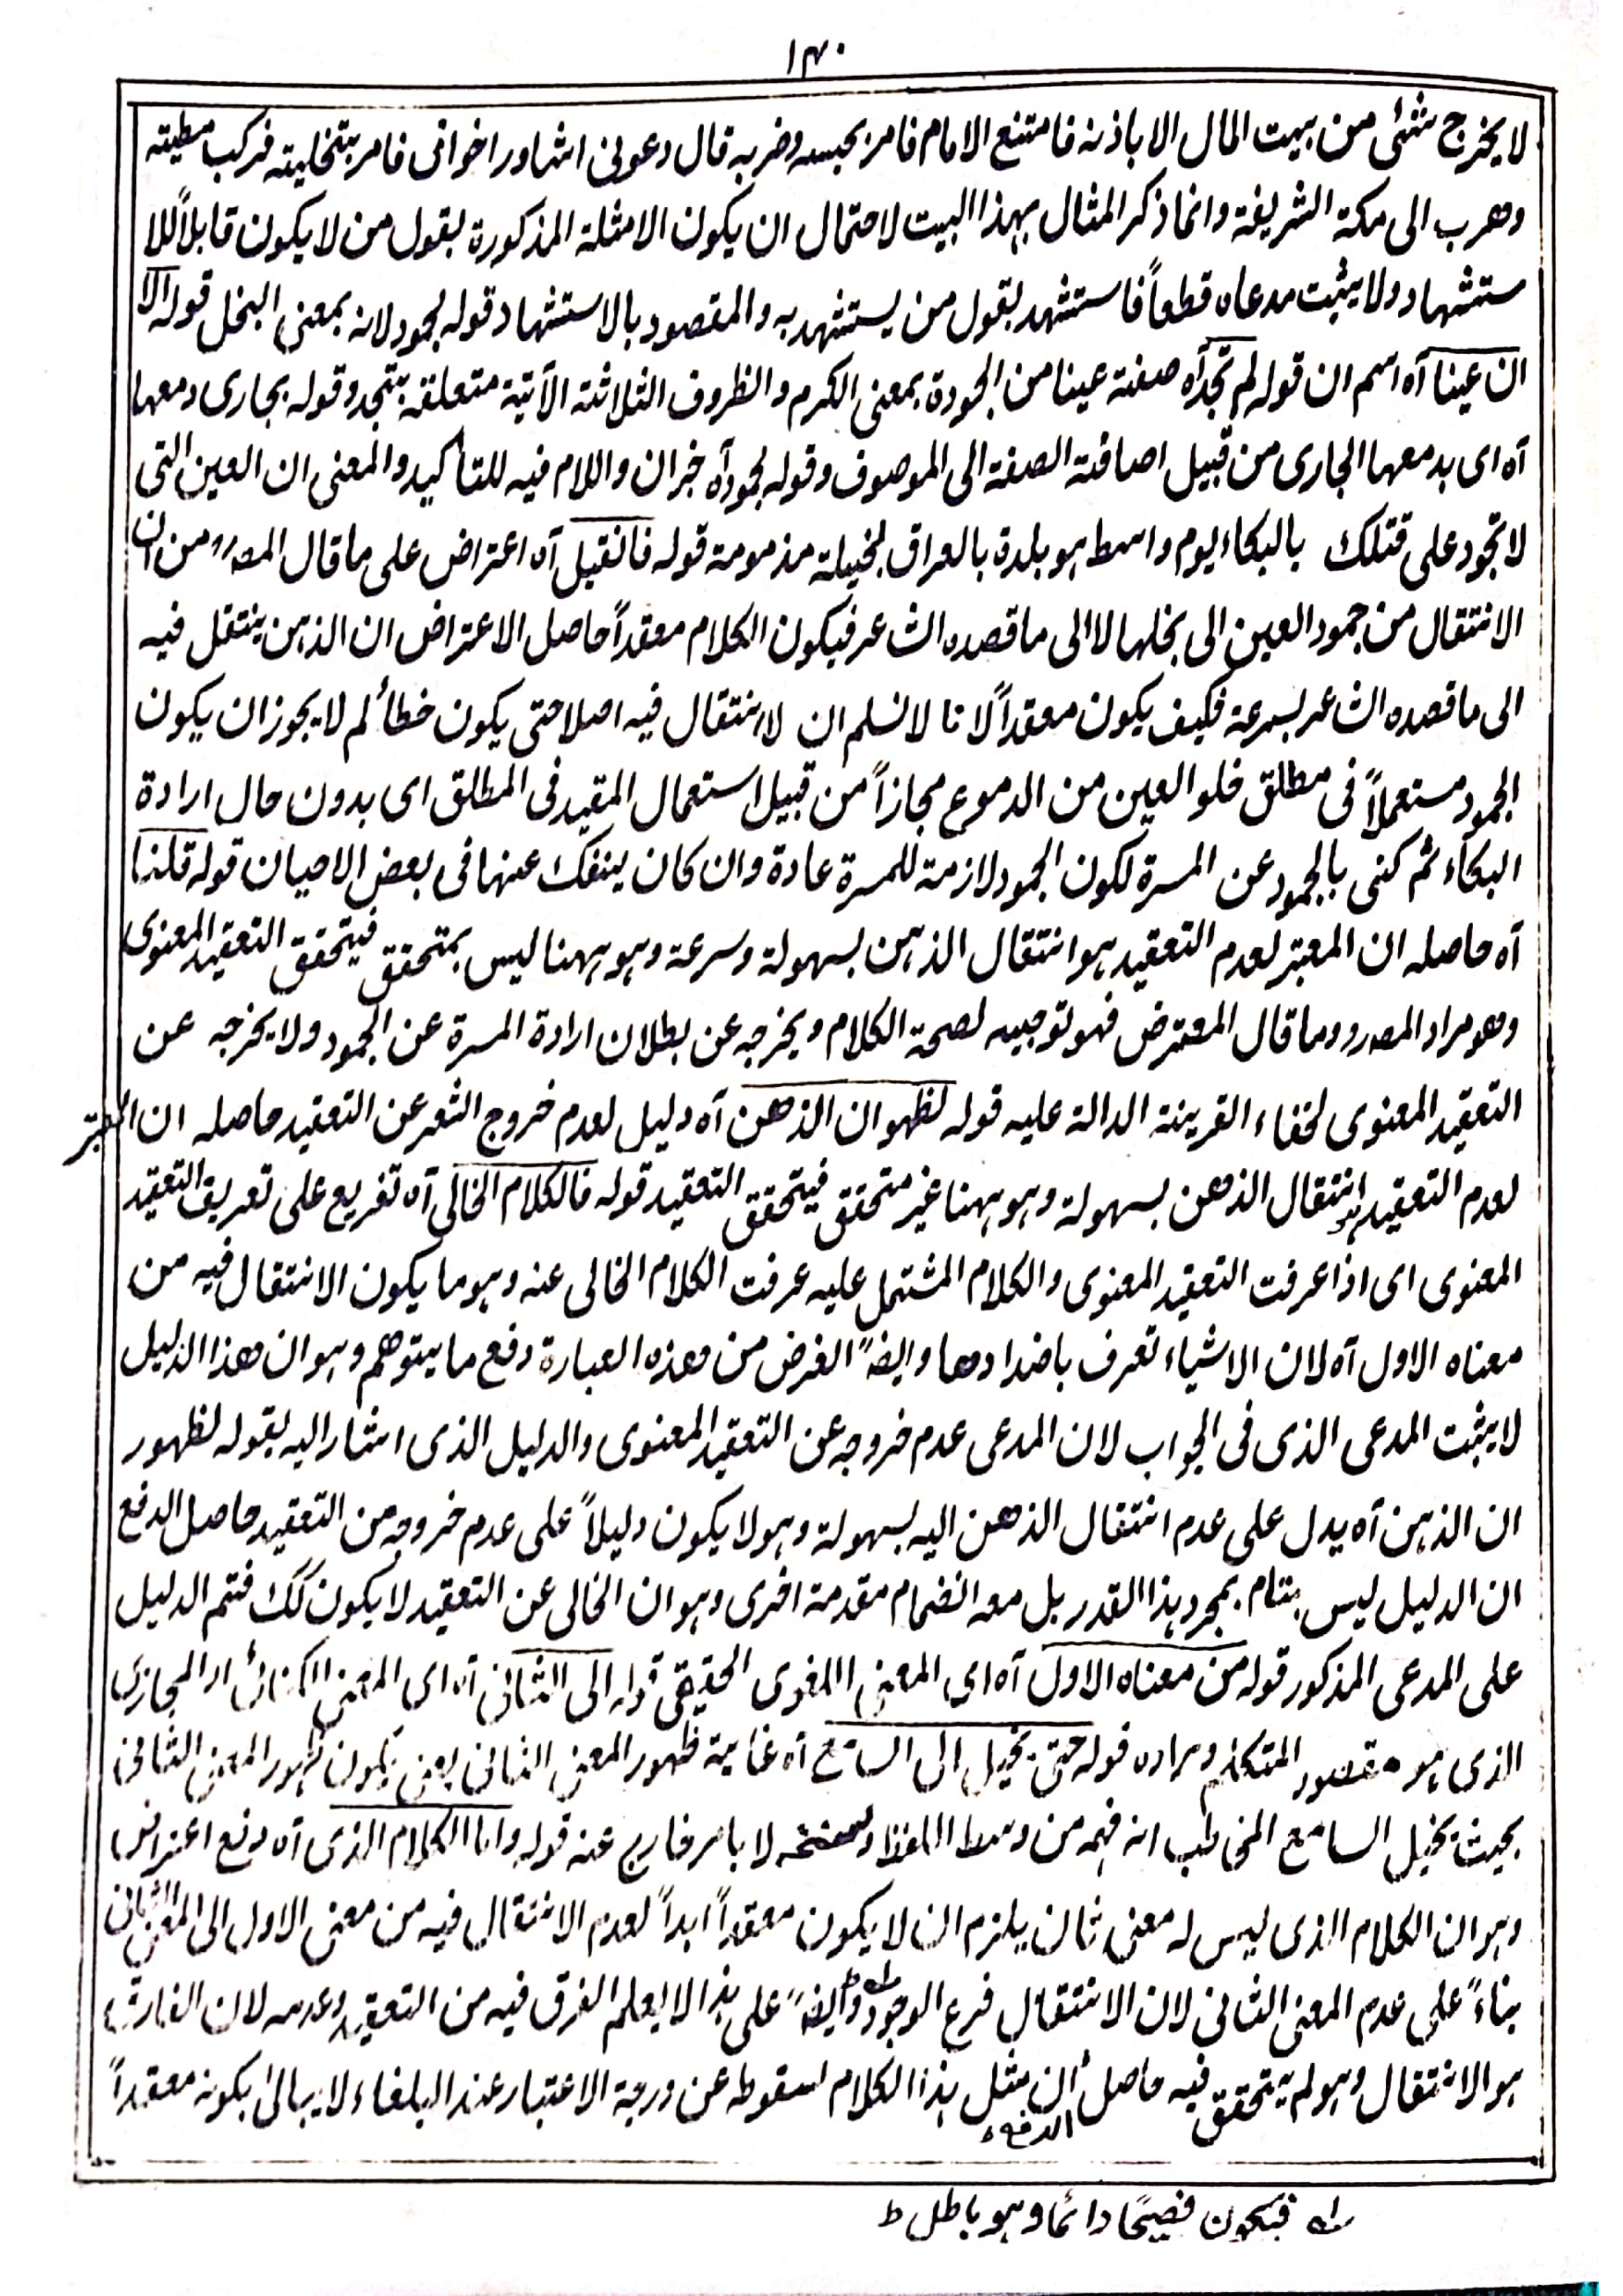 ۱۴۰
لا يخرج شئی من بيت المال الا باذنه فامتنع الامام فامر بحبسه وضربه قال دعونی اشاور اخوانی فامر بتخليته فركب مطيته
وهرب الی مكة الشريفة وانما ذكر المثال بهذا البيت لاحتمال ان يكون الامثلة المذكورة بقول من لا يكون قابلاً للا
ستشهاد ولا يثبت مدعاه قطعاً فاستشهد بقول من يستشهد به والمقصود بالاستشهاد قوله لجمود لانه بمعنی البخل قوله الا
ان عينا آه اسم ان قوله لم تجد آه صفة عينا من الجودة بمعنی الكرم والظروف الثلاثة الآتية متعلقة بتجد وقوله بجاری دمعها
آه ای بدمعها الجاری من قبيل اضافة الصفة الی الموصوف وقوله لجمود آه خبر ان واللام فيه للتأكيد والمعنی ان العين التی
لا تجود علی قتلك بالبكاء يوم واسط هو بلدة بالعراق بخيلة مذمومة قوله فانقيل آه اعتراض علی ما قال المصرو من ان
الانتقال من جمود العين الی بخلها لا الی ما قصده الشاعر فيكون الكلام معقداً حاصل الاعتراض ان الذهن ينتقل فيه
الی ما قصده الشاعر بسرعة فكيف يكون معقداً لانا لا نسلم ان لا انتقال فيه اصلا حتی يكون خطأ لم لا يجوز ان يكون
الجمود مستعملاً فی مطلق خلو العين من الدموع مجازاً من قبيل استعمال المقيد فی المطلق ای بدون حال ارادة
البكاء ثم كنی بالجمود عن المسرة لكون الجمود لازمة للمسرة عادة وان كان ينفك عنها فی بعض الاحيان قوله قلنا
آه حاصله ان المعتبر لعدم التعقيد هو انتقال الذهن بسهولة وسرعة وهو ههنا ليس بمتحقق فيتحقق التعقيد المعنوی
وهو مراد المصرو وما قال المعترض فهو توجيه لصحة الكلام ويخرجه عن بطلان ارادة المسرة عن الجمود ولا يخرجه عن
التعقيد المعنوی لخفاء القرينة الدالة عليه قوله لظهور ان الذهن آه دليل لعدم خروج الشعر عن التعقيد حاصله ان المعتبر
لعدم التعقيد هو انتقال الذهن بسهولة وهو ههنا غير متحقق فيتحقق التعقيد قوله فالكلام الخالی آه تفريع علی تعريف التعقيد
المعنوی ای اذا عرفت التعقيد المعنوی والكلام المشتمل عليه عرفت الكلام الخالی عنه وهو ما يكون الانتقال فيه من
معناه الاول آه لان الاشياء تعرف باضدادها وايضً الغرض من هذه العبارة دفع ما يتوهم وهو ان هذا الدليل
لا يثبت المدعی الذی فی الجواب لان المدعی عدم خروجه عن التعقيد المعنوی والدليل الذی اشار اليه بقوله لظهور
ان الذهن آه يدل علی عدم انتقال الذهن اليه بسهولة وهو لا يكون دليلاً علی عدم خروجه من التعقيد حاصل الدفع
ان الدليل ليس بتام بمجرد هذا القدر بل معه انضمام مقدمة اخری وهو ان الخالی عن التعقيد لا يكون كك فتم الدليل
علی المدعی المذكور قوله من معناه الاول آه ای المعنی اللغوی الحقيقی قوله الی الثانی آه ای المعنی الكنائی او المجازی
الذی هو مقصود المتكلم ومراده قوله حتی يخيل الی السامع آه غاية ظهور المعنی الثانی يعنی يكون ظهور المعنی الثانی
بحيث يخيل السامع المخاطب انه فهمه من وسط اللفظ لا بامر خارج عنه قوله واما الكلام الذی آه دفع اعتراض
وهو ان الكلام الذی ليس له معنی ثان يلزم ان لا يكون معقداً ابداً لعدم الانتقال فيه من معنی الاول الی المعنی الثانی
بناءً علی عدم المعنی الثانی لان الانتقال فرع الوجود ؎ وايضً علی هذا لا يعلم الفرق فيه من التعقيد وعدمه لان الفارق
هو الانتقال وهو لم يتحقق فيه حاصل الدفع ان مثل هذا الكلام لسقوطه عن درجة الاعتبار عند البلغاء لا يبالی بكونه معقداً
؎ فيكون فصيحًا دائما وهو باطل ط